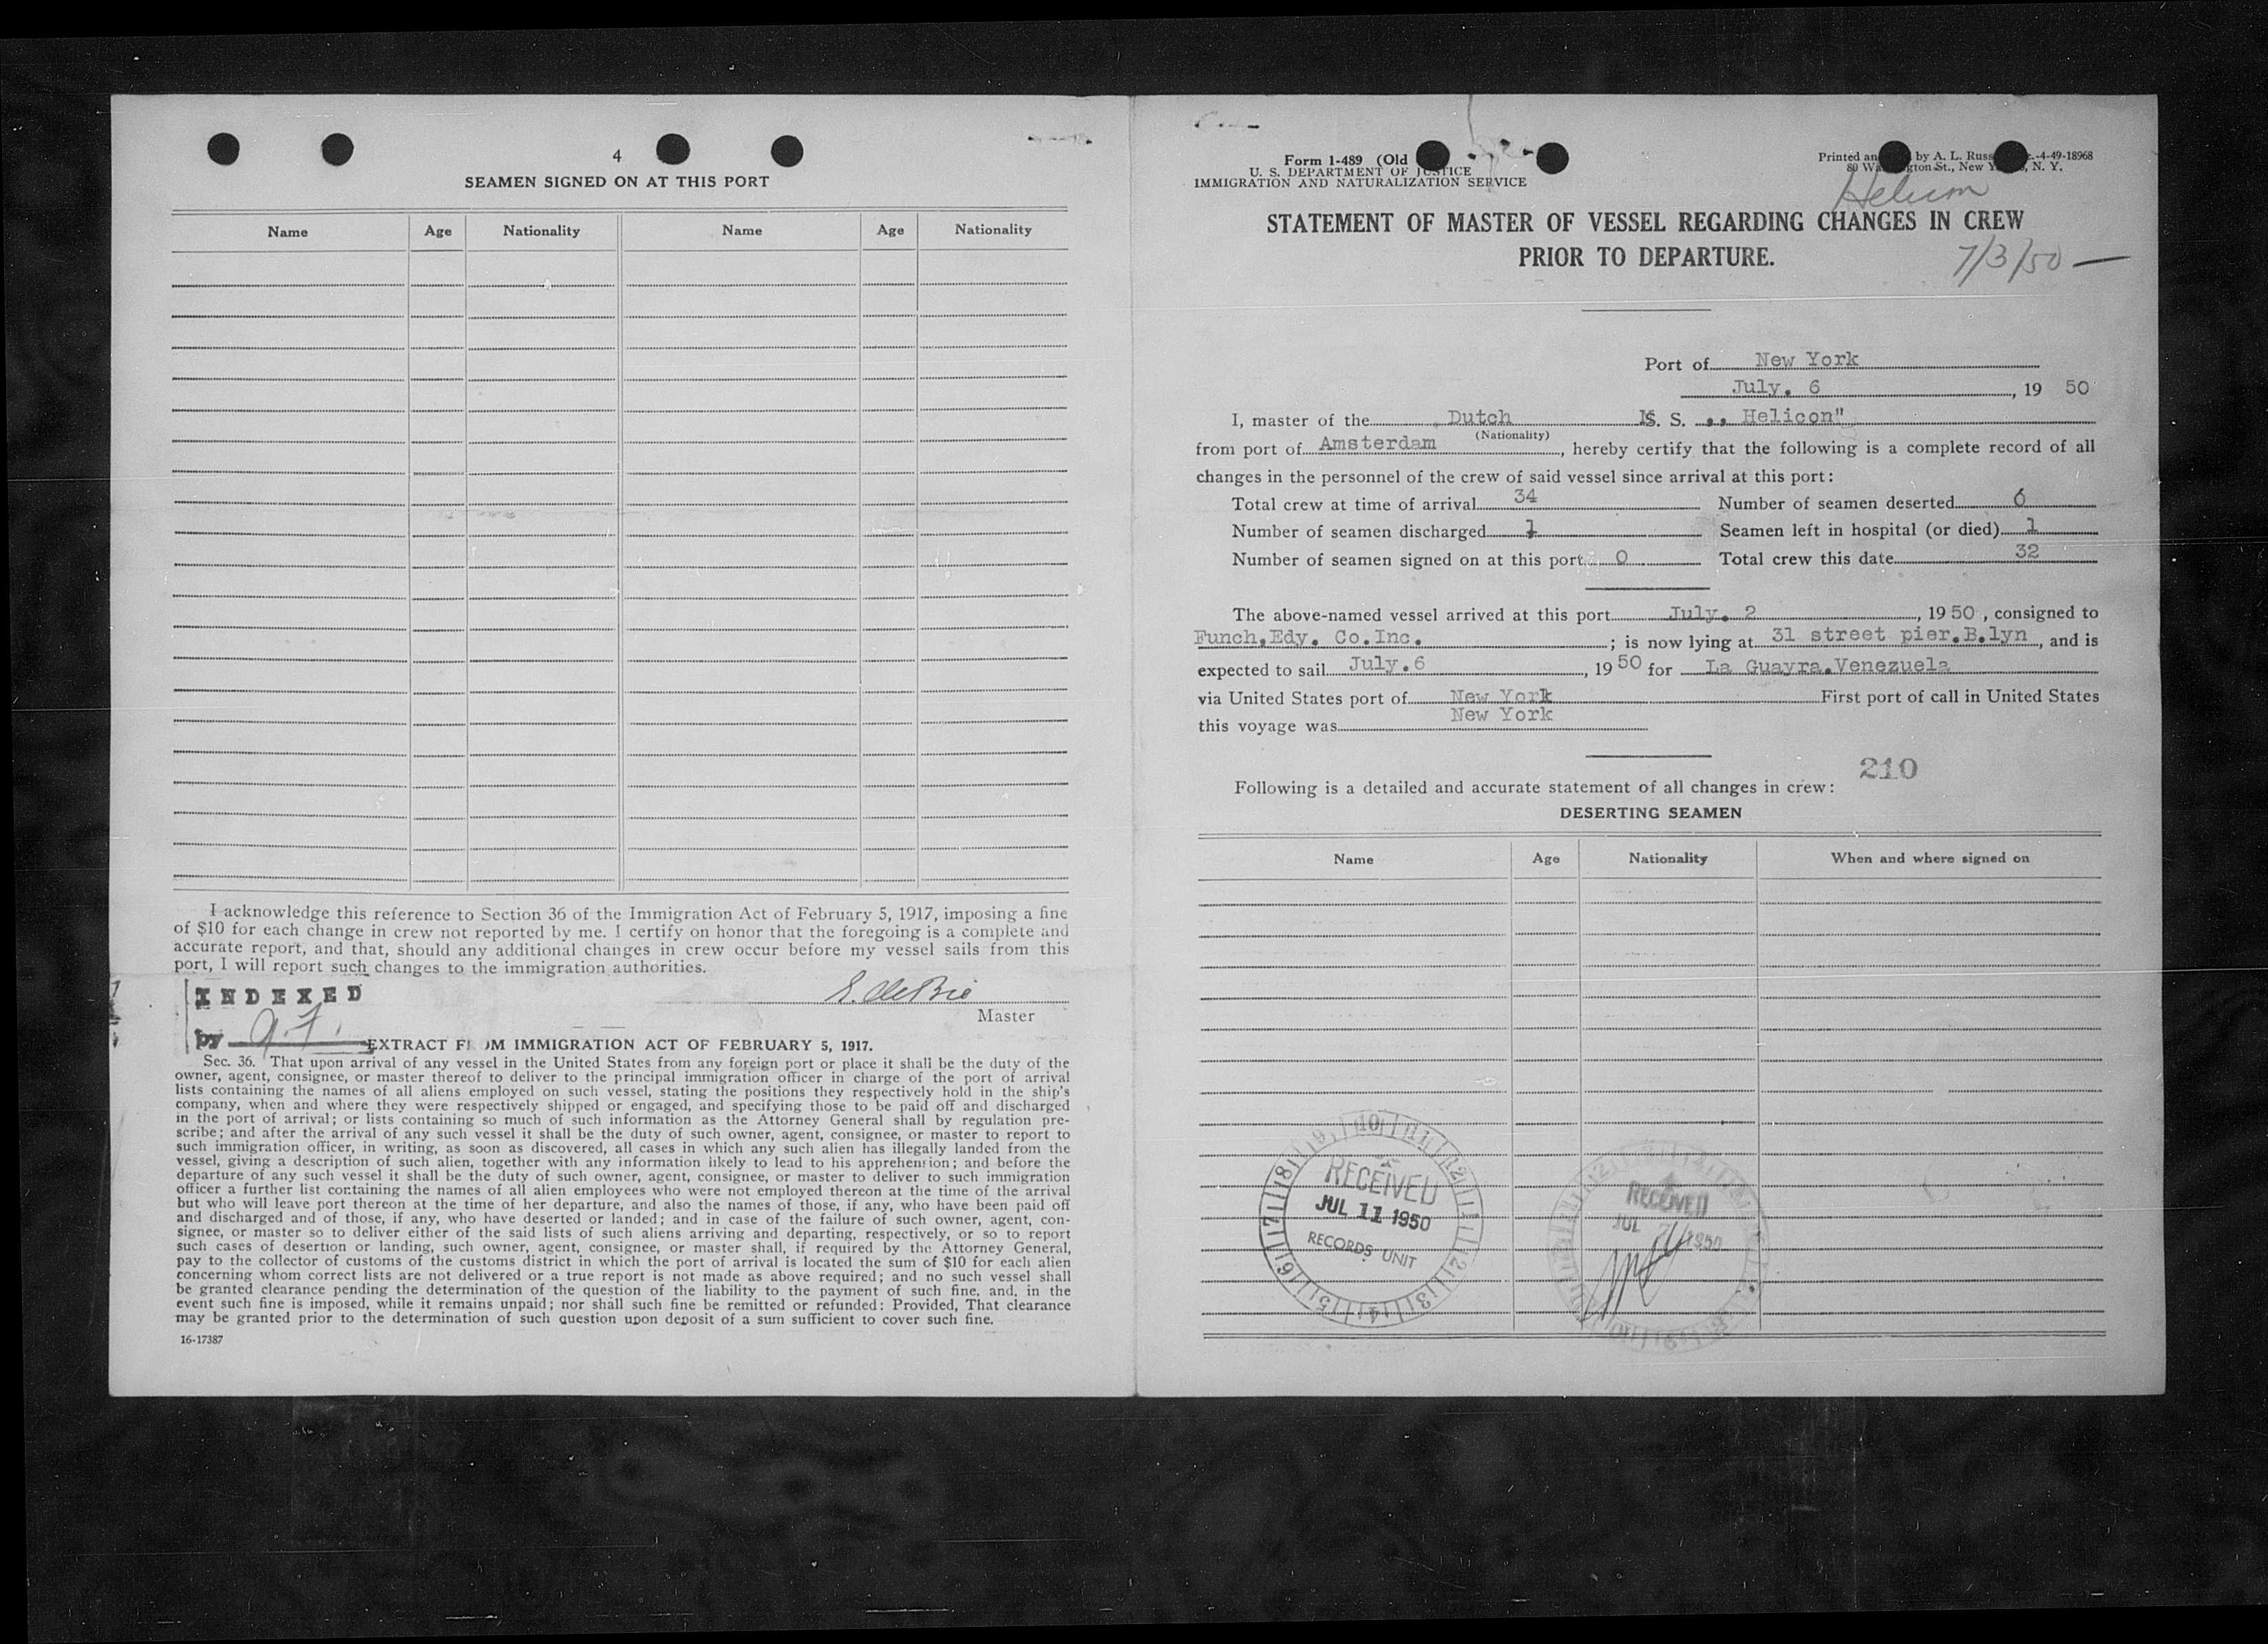 4
SEAMEN SIGNED ON AT THIS PORT
Name Age Nationality Name Age Nationality
I acknowledge this reference to Section 36 of the Immigration Act of February 5, 1917, imposing a fine
of $10 for each change in crew not reported by me. I certify on honor that the foregoing is a complete and
accurate report, and that, should any additional changes in crew occur before my vessel sails from this
port, I will report such changes to the immigration authorities.
INDEXED
Master
by
EXTRACT FROM IMMIGRATION ACT OF FEBRUARY 5, 1917.
Sec. 36. That upon arrival of any vessel in the United States from any foreign port or place it shall be the duty of the
owner, agent, consignee, or master thereof to deliver to the principal immigration officer in charge of the port of arrival
lists containing the names of all aliens employed on such vessel, stating the positions they respectively hold in the ship's
company, when and where they were respectively shipped or engaged, and specifying those to be paid off and discharged
in the port of arrival; or lists containing so much of such information as the Attorney General shall by regulation pre-
scribe; and after the arrival of any such vessel it shall be the duty of such owner, agent, consignee, or master to report to
such immigration officer, in writing, as soon as discovered, all cases in which any such alien has illegally landed from the
vessel, giving a description of such alien, together with any information likely to lead to his apprehension; and before the
departure of any such vessel it shall be the duty of such owner, agent, consignee, or master to deliver to such immigration
officer a further list containing the names of all alien employees who were not employed thereon at the time of the arrival
but who will leave port thereon at the time of her departure, and also the names of those, if any, who have been paid off
and discharged and of those, if any, who have deserted or landed; and in case of the failure of such owner, agent, con-
signee, or master so to deliver either of the said lists of such aliens arriving and departing, respectively, or so to report
such cases of desertion or landing, such owner, agent, consignee, or master shall, if required by the Attorney General,
pay to the collector of customs of the customs district in which the port of arrival is located the sum of $10 for each alien
concerning whom correct lists are not delivered or a true report is not made as above required; and no such vessel shall
be granted clearance pending the determination of the question of the liability to the payment of such fine, and, in the
event such fine is imposed, while it remains unpaid; nor shall such fine be remitted or refunded: Provided, That clearance
may be granted prior to the determination of such question upon deposit of a sum sufficient to cover such fine.
16-17387
Form 1-489 (Old
U. S. DEPARTMENT OF JUSTICE
IMMIGRATION AND NATURALIZATION SERVICE
Printed an by A. L. Russ -4-49-18968
80 Washington St., New York, N. Y.
Helicon
STATEMENT OF MASTER OF VESSEL REGARDING CHANGES IN CREW
PRIOR TO DEPARTURE.
7/3/50 —
Port of New York
July. 6, 19 50
I, master of the Dutch M. S. ,, Helicon"
(Nationality)
from port of Amsterdam, hereby certify that the following is a complete record of all
changes in the personnel of the crew of said vessel since arrival at this port:
Total crew at time of arrival 34 Number of seamen deserted 0
Number of seamen discharged 1 Seamen left in hospital (or died) 1
Number of seamen signed on at this port 0 Total crew this date 32
The above-named vessel arrived at this port July. 2, 19 50, consigned to
Funch,Edy. Co.Inc.; is now lying at 31 street pier.B.lyn, and is
expected to sail July.6, 19 50 for La Guayra.Venezuela
via United States port of New York First port of call in United States
this voyage was New York
210
Following is a detailed and accurate statement of all changes in crew:
DESERTING SEAMEN
Name Age Nationality When and where signed on
RECEIVED
JUL 11 1950
RECORDS UNIT
RECEIVED
JUL 1950